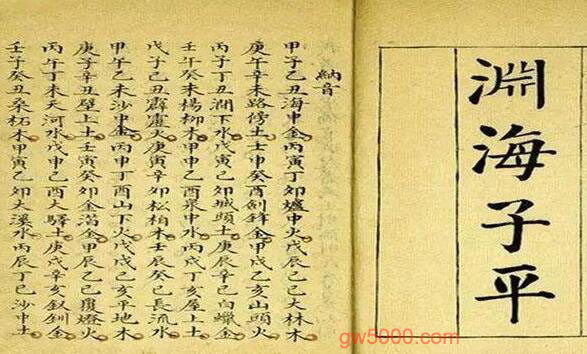 淵海子平
納音
甲子乙丑海中金丙寅丁卯爐中火戊辰己巳大林木
庚午辛未路傍土壬申癸酉劍鋒金甲戌乙亥山頭火
丙子丁丑澗下水戊寅己卯城頭土庚辰辛巳白蠟金
壬午癸未楊柳木甲申乙酉泉中水丙戌丁亥屋上土
戊子己丑霹靂火庚寅辛卯松柏木壬辰癸巳長流水
甲午乙未沙中金丙申丁酉山下火戊戌己亥平地木
庚子辛丑壁上土壬寅癸卯金箔金甲辰乙巳覆燈火
丙午丁未天河水戊申己酉大驛土庚戌辛亥釵釧金
壬子癸丑桑柘木甲寅乙卯大溪水丙辰丁巳沙中土
gw5000.com